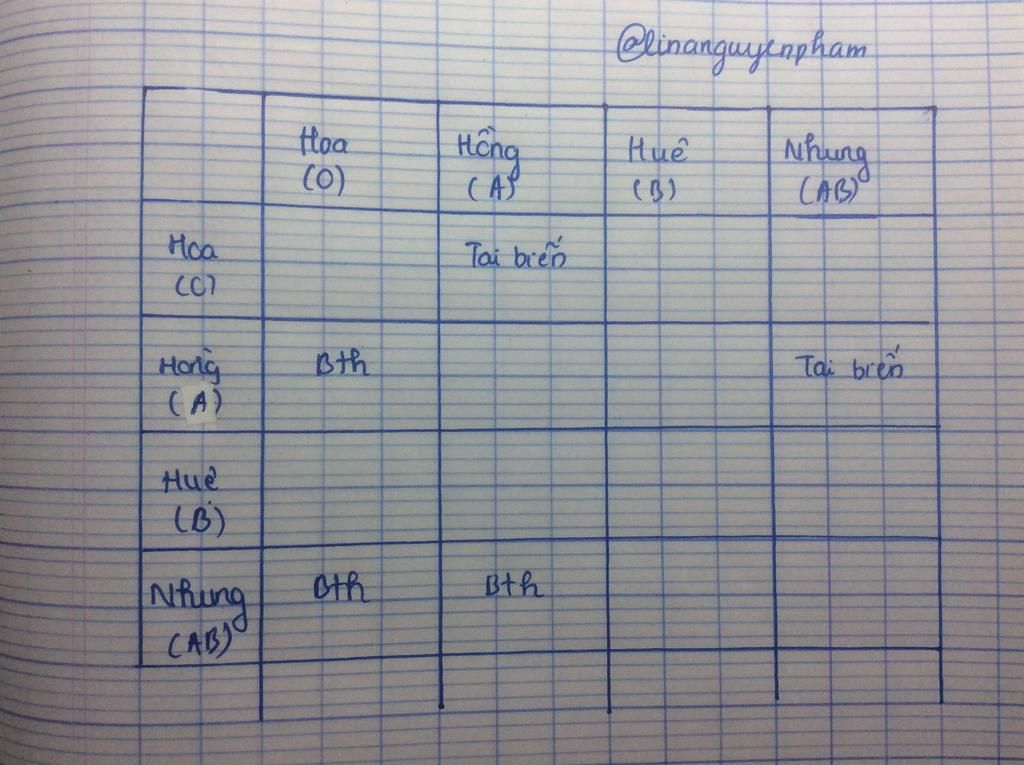 @linanguyenpham
Hoa Hồng Huê Nhung
(O) (A) (B) (AB)
Hoa Tai biến
(O)
Hồng Bth Tai biến
(A)
Huê
(B)
Nhung Bth Bth
(AB)